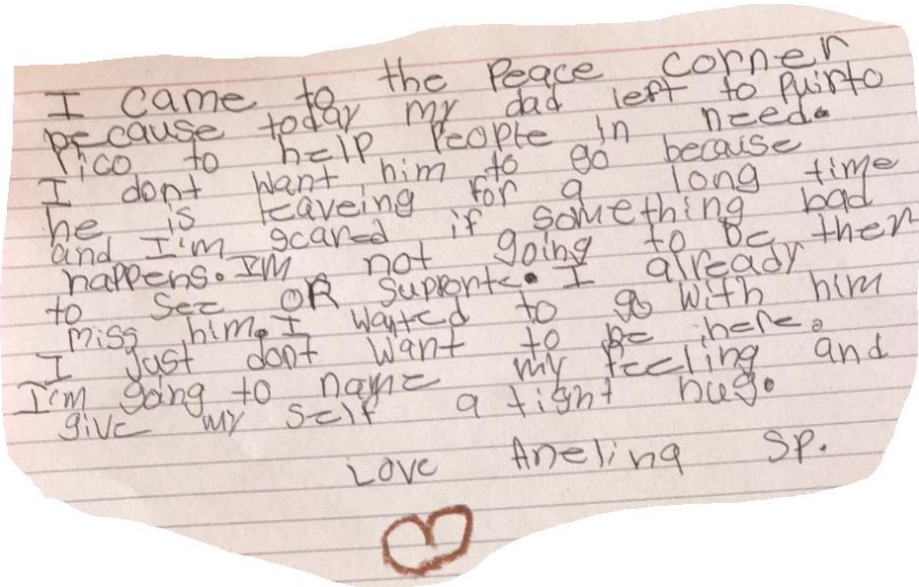 I came to the Peace corner
because today my dad left to Puirto
Pico to help People in need.
I dont want him to go because
he is leaveing for a long time
and I'm scared if something bad
happens. I'M not going to be ther
to see OR supporte. I already
miss him. I wanted to go with him
I just dont want to be here.
I'm going to name my feeling and
give my self a tight hug.
Love Anelina Sp.